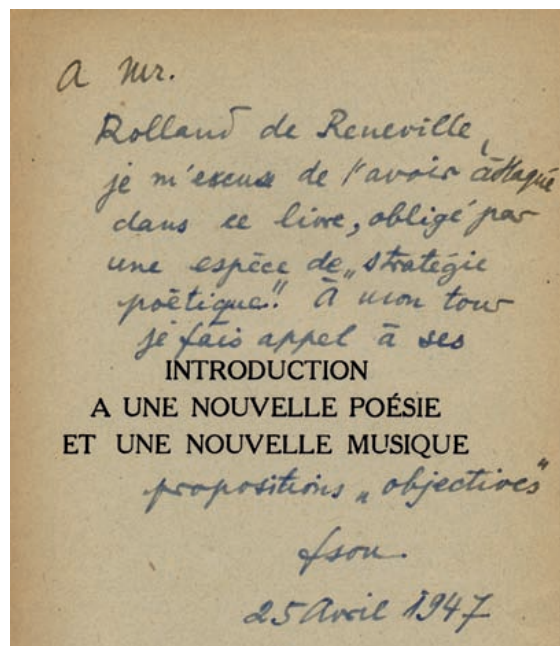 A Mr.
Rolland de Reneville,
je m'excuse de l'avoir attaqué
dans ce livre, obligé par
une espèce de „stratégie
poëtique". À mon tour
je fais appel à ses
INTRODUCTION
A UNE NOUVELLE POÉSIE
ET UNE NOUVELLE MUSIQUE
propositions „objectives"
25 Avril 1947